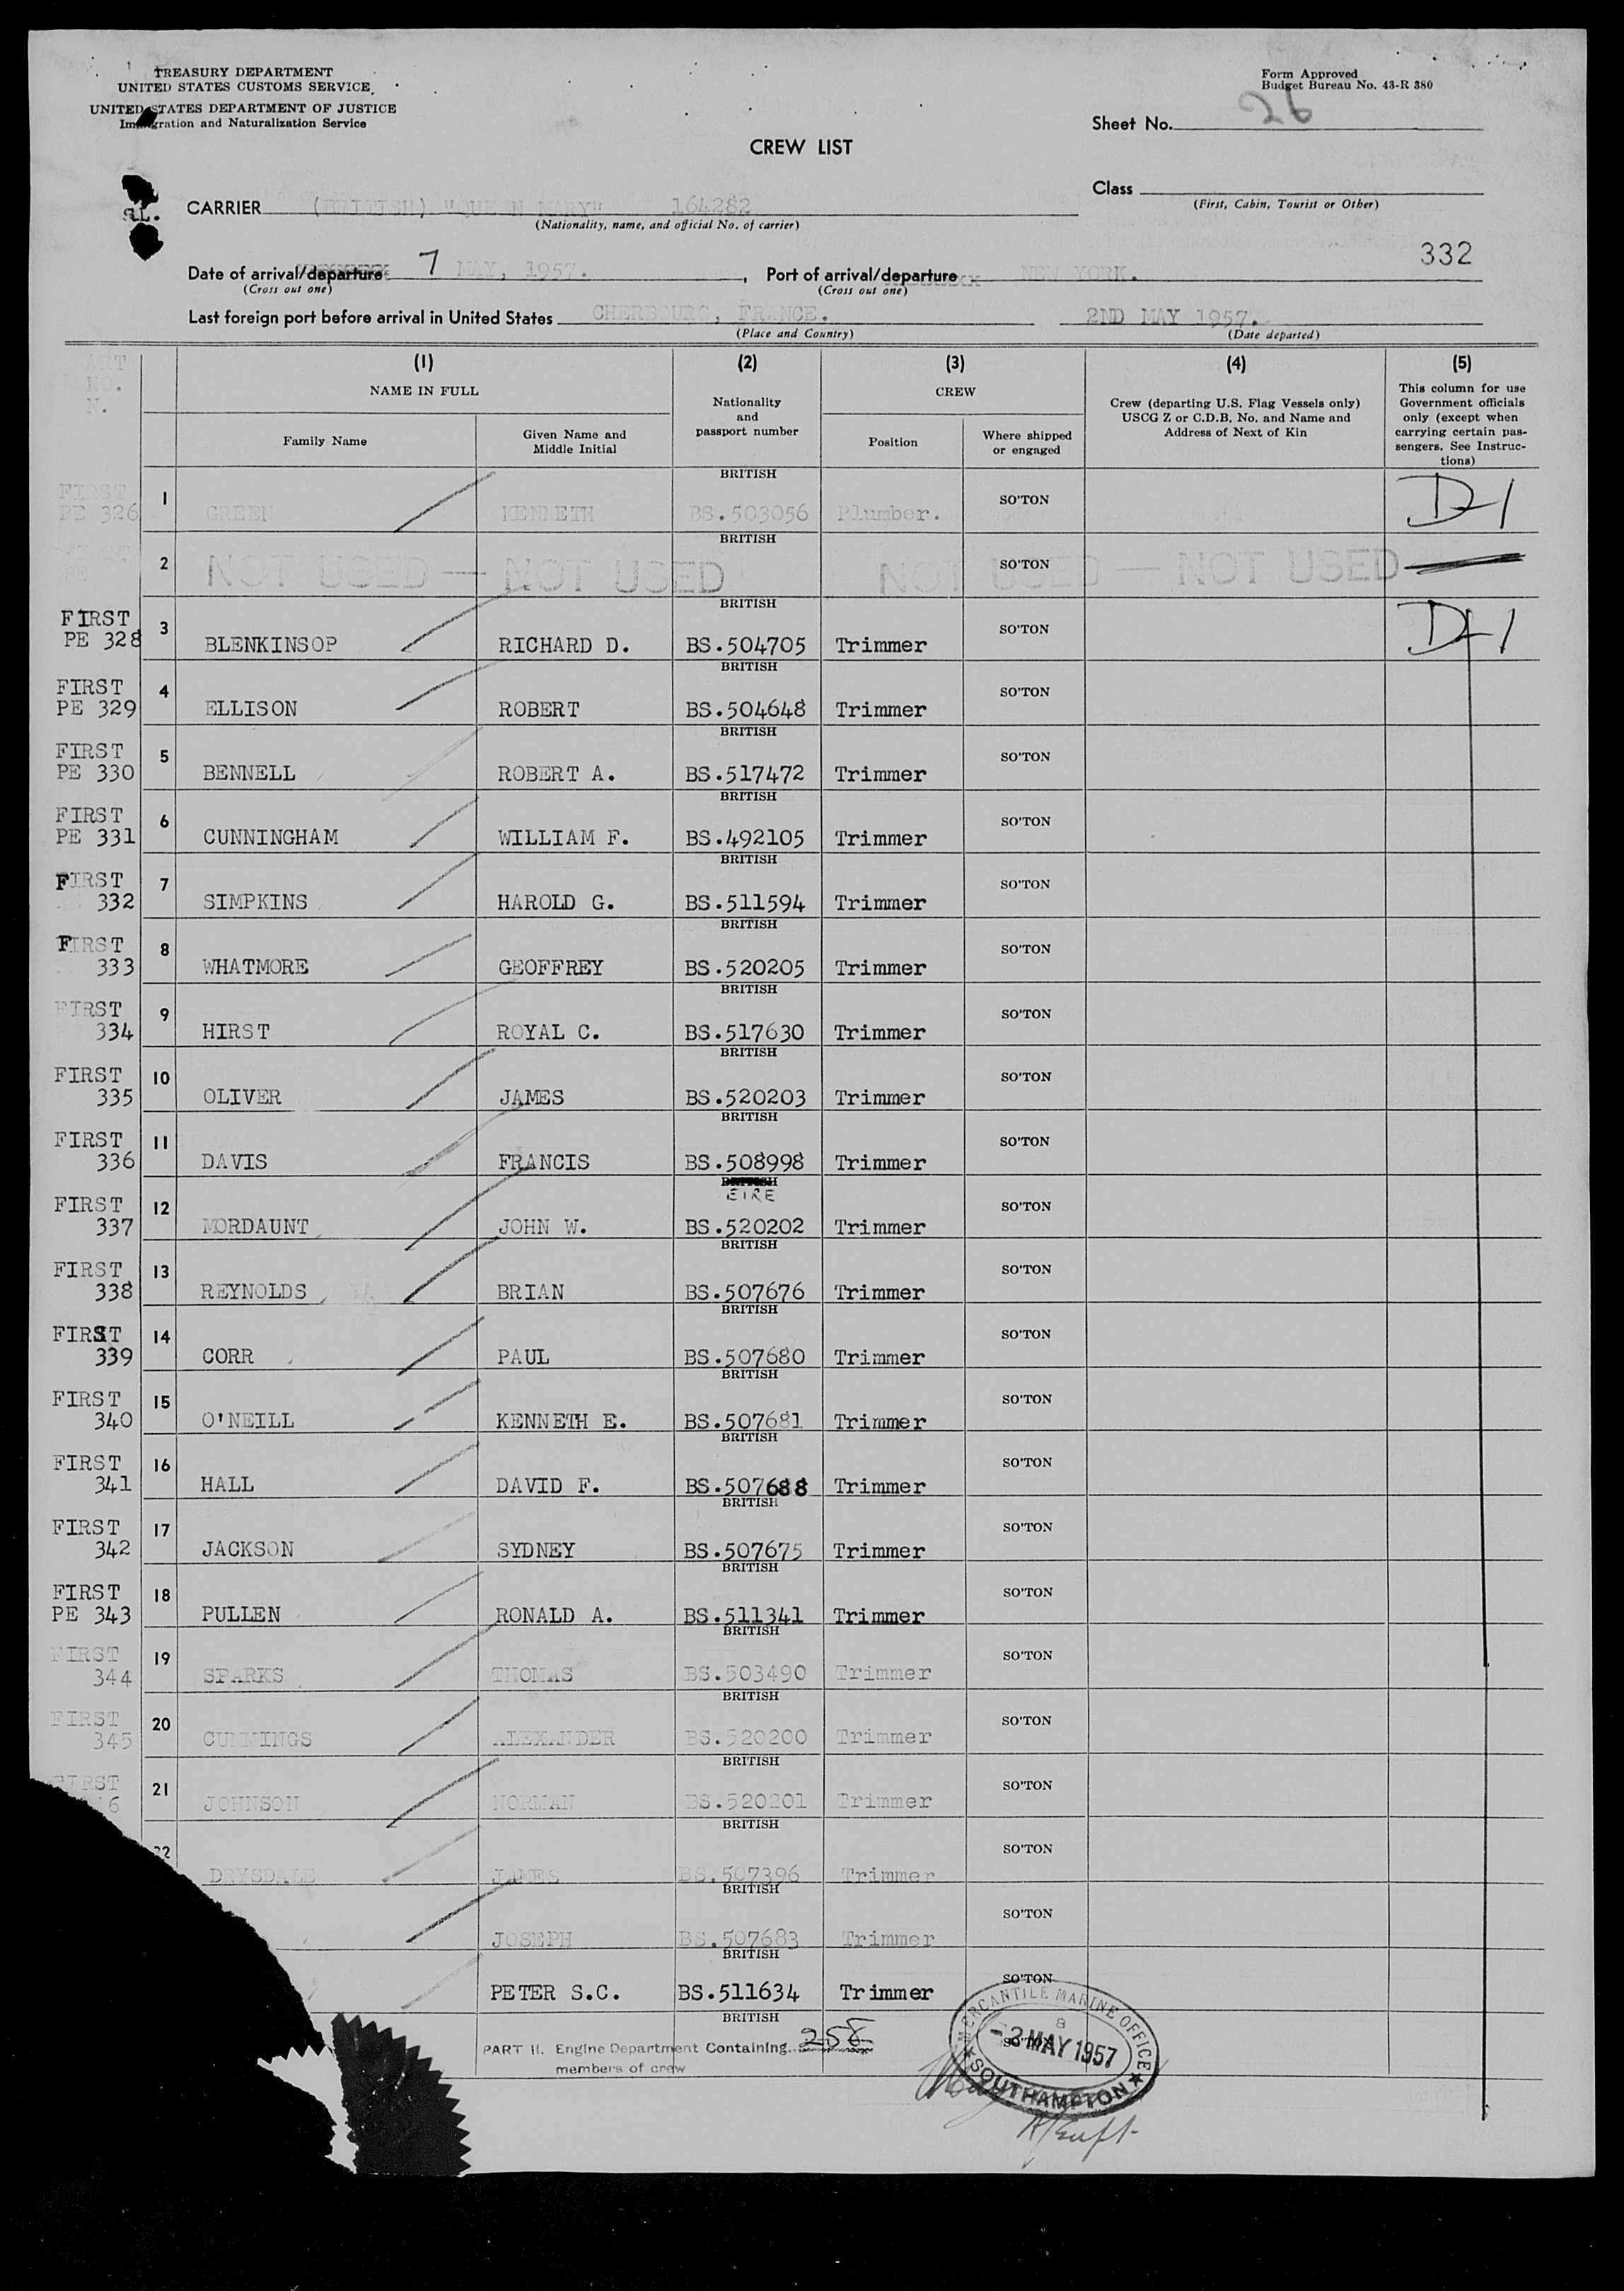 TREASURY DEPARTMENT
UNITED STATES CUSTOMS SERVICE
UNITED STATES DEPARTMENT OF JUSTICE
Immigration and Naturalization Service
Form Approved
Budget Bureau No. 43-R 380
Sheet No. 26
CREW LIST
Class
(First, Cabin, Tourist or Other)
CARRIER (BRITISH) "QUEEN MARY" 164282
(Nationality, name, and official No. of carrier)
332
Date of arrival/departure 7 MAY, 1957. , Port of arrival/departure NEW YORK.
(Cross out one) (Cross out one)
Last foreign port before arrival in United States CHERBOURG, FRANCE. 2ND MAY 1957.
(Place and Country) (Date departed)
ART NO. N.
(1) (2) (3) (4) (5)
NAME IN FULL
Family Name
Given Name and Middle Initial
Nationality and passport number
CREW
Position
Where shipped or engaged
Crew (departing U.S. Flag Vessels only)
USCG Z or C.D.B. No. and Name and
Address of Next of Kin
This column for use
Government officials
only (except when
carrying certain pas-
sengers. See Instruc-
tions)
FIRST PE 326 1 GREEN KENNETH BRITISH BS.503056 Plumber. SO'TON D-1
2 NOT USED — NOT USED BRITISH NOT USED — NOT USED SO'TON
FIRST PE 328 3 BLENKINSOP RICHARD D. BRITISH BS.504705 Trimmer SO'TON D-1
FIRST PE 329 4 ELLISON ROBERT BRITISH BS.504648 Trimmer SO'TON
FIRST PE 330 5 BENNELL ROBERT A. BRITISH BS.517472 Trimmer SO'TON
FIRST PE 331 6 CUNNINGHAM WILLIAM F. BRITISH BS.492105 Trimmer SO'TON
FIRST 332 7 SIMPKINS HAROLD G. BRITISH BS.511594 Trimmer SO'TON
FIRST 333 8 WHATMORE GEOFFREY BRITISH BS.520205 Trimmer SO'TON
FIRST 334 9 HIRST ROYAL C. BRITISH BS.517630 Trimmer SO'TON
FIRST 335 10 OLIVER JAMES BRITISH BS.520203 Trimmer SO'TON
FIRST 336 11 DAVIS FRANCIS BRITISH BS.508998 Trimmer SO'TON
FIRST 337 12 MORDAUNT JOHN W. BRITISH EIRE BS.520202 Trimmer SO'TON
FIRST 338 13 REYNOLDS BRIAN BRITISH BS.507676 Trimmer SO'TON
FIRST 339 14 CORR PAUL BRITISH BS.507680 Trimmer SO'TON
FIRST 340 15 O'NEILL KENNETH E. BRITISH BS.507681 Trimmer SO'TON
FIRST 341 16 HALL DAVID F. BRITISH BS.507688 Trimmer SO'TON
FIRST 342 17 JACKSON SYDNEY BRITISH BS.507675 Trimmer SO'TON
FIRST PE 343 18 PULLEN RONALD A. BRITISH BS.511341 Trimmer SO'TON
FIRST 344 19 SPARKS THOMAS BRITISH BS.503490 Trimmer SO'TON
FIRST 345 20 CUMMINGS ALEXANDER BRITISH BS.520200 Trimmer SO'TON
FIRST 21 JOHNSON NORMAN BRITISH BS.520201 Trimmer SO'TON
22 DRYSDALE JAMES BRITISH BS.507396 Trimmer SO'TON
JOSEPH BRITISH BS.507683 Trimmer SO'TON
PETER S.C. BRITISH BS.511634 Trimmer SO'TON
BRITISH SO'TON
PART II. Engine Department Containing 258
members of crew
MERCANTILE MARINE OFFICE
8
-2 MAY 1957
SOUTHAMPTON